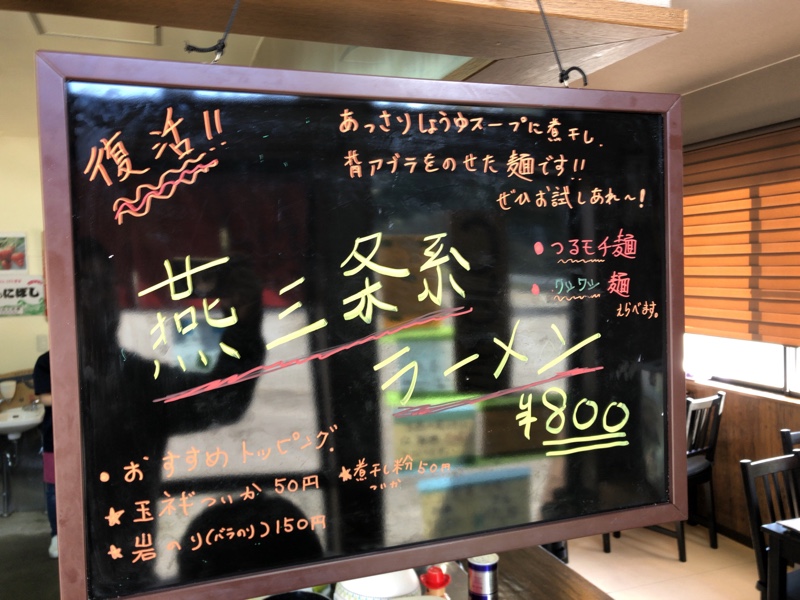 復活!!
あっさりしょうゆスープに煮干し、
背アブラをのせた麺です!!
ぜひお試しあれ～!
燕三条系
ラーメン
¥800
・つるモチ麺
・ワシワシ麺
えらべます。
・おすすめトッピング
★玉ネギついか50円
★岩のり(バラのり)150円
★煮干し粉50円
ついか
にぼし